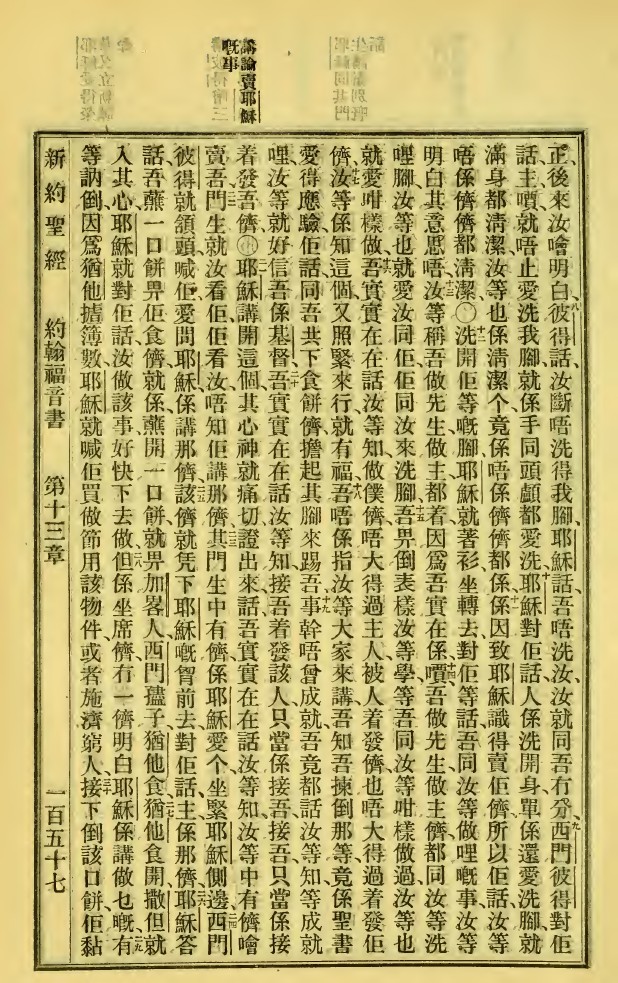 講論賣耶穌
嘅事
正、後來汝噲明白、彼得話、汝斷唔洗得我腳、耶穌話、吾唔洗汝、汝就同吾冇分、西門彼得對佢
話、主嘪、就唔止愛洗我腳、就係手同頭顱都愛洗、耶穌對佢話、人係洗開身、單係還愛洗腳、就
滿身都清潔、汝等也係清潔个、竟係唔係儕儕都係、係因致耶穌識得賣佢儕、所以佢話、汝等
唔係儕儕都清潔、○洗開佢等嘅腳、耶穌就著衫、坐轉去、對佢等話、吾同汝等做哩嘅事、汝等
明白其意思唔、汝等稱吾做先生做主、都着、因爲吾實在係嘪、吾做先生做主儕、都同汝等洗
哩腳、汝等也就愛汝同佢佢同汝來洗腳、吾畀倒表樣汝等學、等吾同汝等咁樣做過、汝等也
就愛咁樣做、吾實實在在話汝等知、做僕儕、唔大得過主人、被人着發儕、也唔大得過着發佢
儕、汝等係知這個、又照緊來行、就有福、吾唔係指汝等大家來講、吾知吾揀倒那等、竟係聖書
愛得應驗佢話、同吾共下食餅儕、擔起其腳來踢吾、事幹唔曾成就、吾竟都話汝等知、等成就
哩、汝等就好信吾係基督、吾實實在在話汝等知、接吾着發該人、只當係接吾、接吾、只當係接
着發吾儕、○耶穌講開這個、其心神就痛切、證出來話、吾實實在在話汝等知、汝等中有儕噲
賣吾、門生就汝看佢佢看汝、唔知佢講那儕、其門生中有儕係耶穌愛个、坐緊耶穌側邊、西門
彼得就頷頭喊佢、愛問耶穌係講那儕、該儕就凭下耶穌嘅胷前去、對佢話、主係那儕、耶穌答
話、吾蘸一口餅畀佢食儕就係、蘸開一口餅、就畀加畧人西門孻子猶他食、猶他食開、撒但就
入其心、耶穌就對佢話、汝做該事好快下去做、但係坐席儕、冇一儕明白耶穌係講做乜嘅、有
等訥倒、因爲猶他㨿簿數、耶穌就喊佢買做節用該物件、或者施濟窮人、接下倒該口餅、佢黏
新約聖經 約翰福音書 第十三章 一百五十七